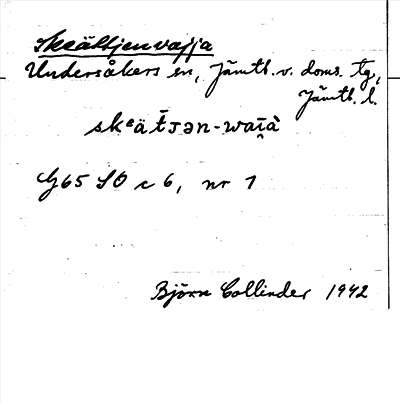 Skeältjenvajja
Undersåkers sn, Jämtl. v. doms. tg,
Jämtl. l.
skᵉät̄ᴊən-wai̯à
G65 SO c 6, nr 1
Björn Collinder 1942